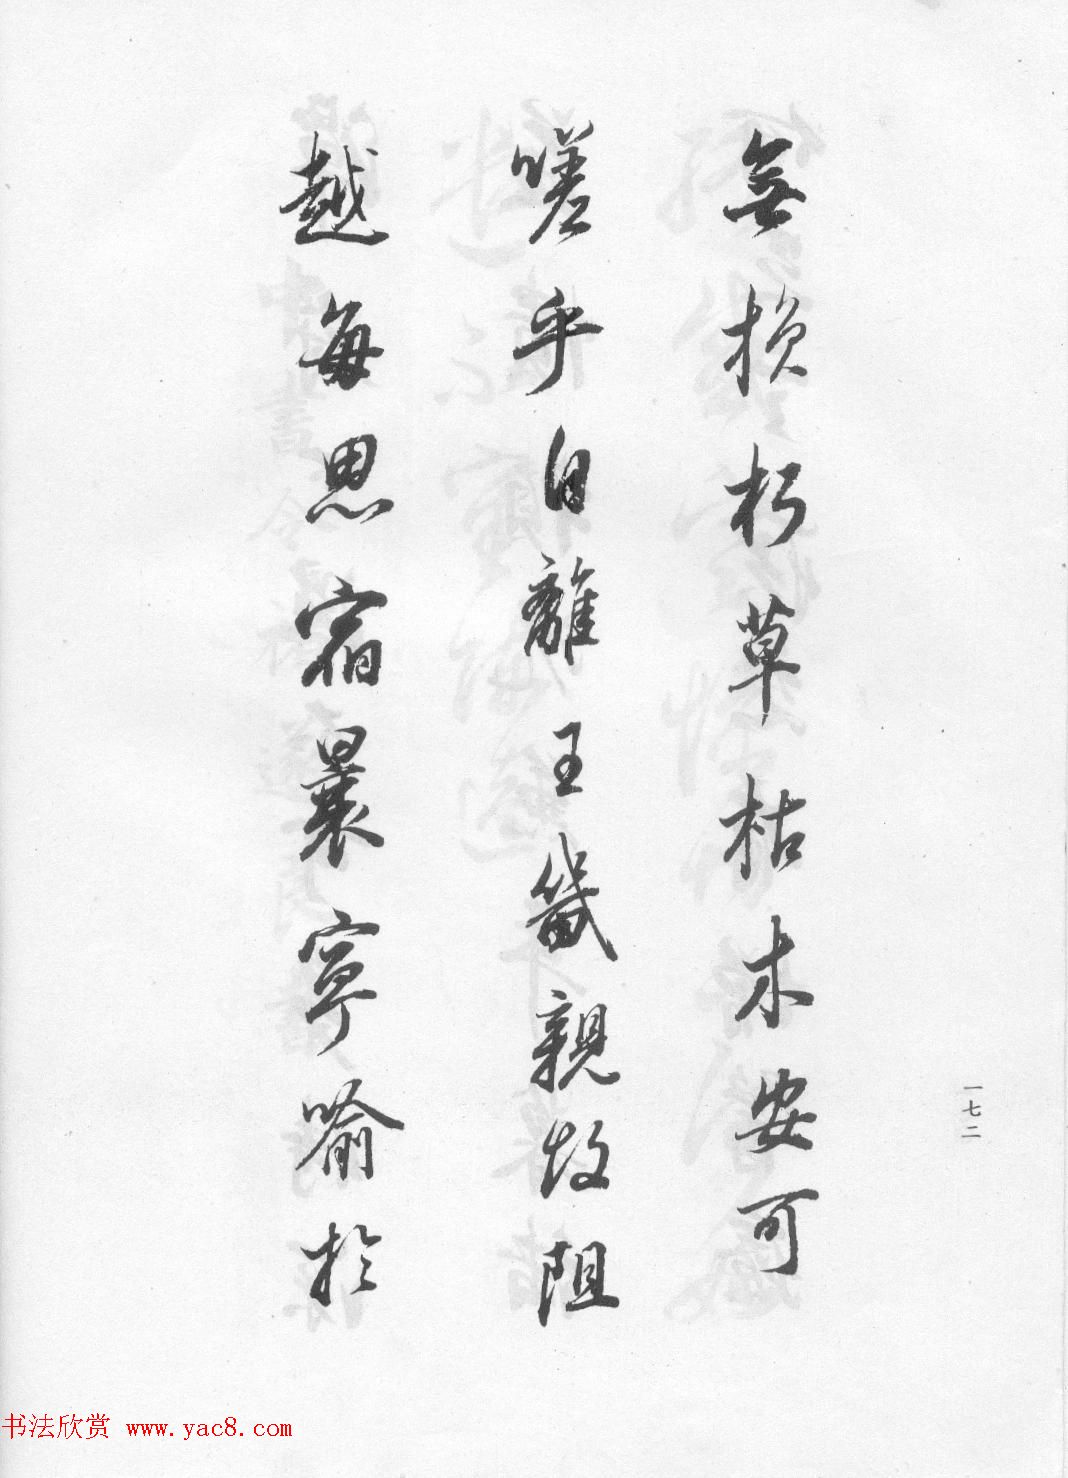 無損朽草枯木安可
嗟乎自離王畿親故阻
越每思宿曩寧喻於
一七二
书法欣赏 www.yac8.com